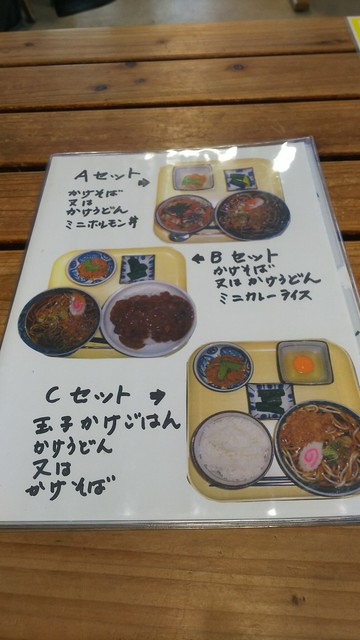 Aセット →
かけそば
又は
かけうどん
ミニホルモン丼
← Bセット
かけそば
又はかけうどん
ミニカレーライス
Cセット →
玉子かけごはん
かけうどん
又は
かけそば